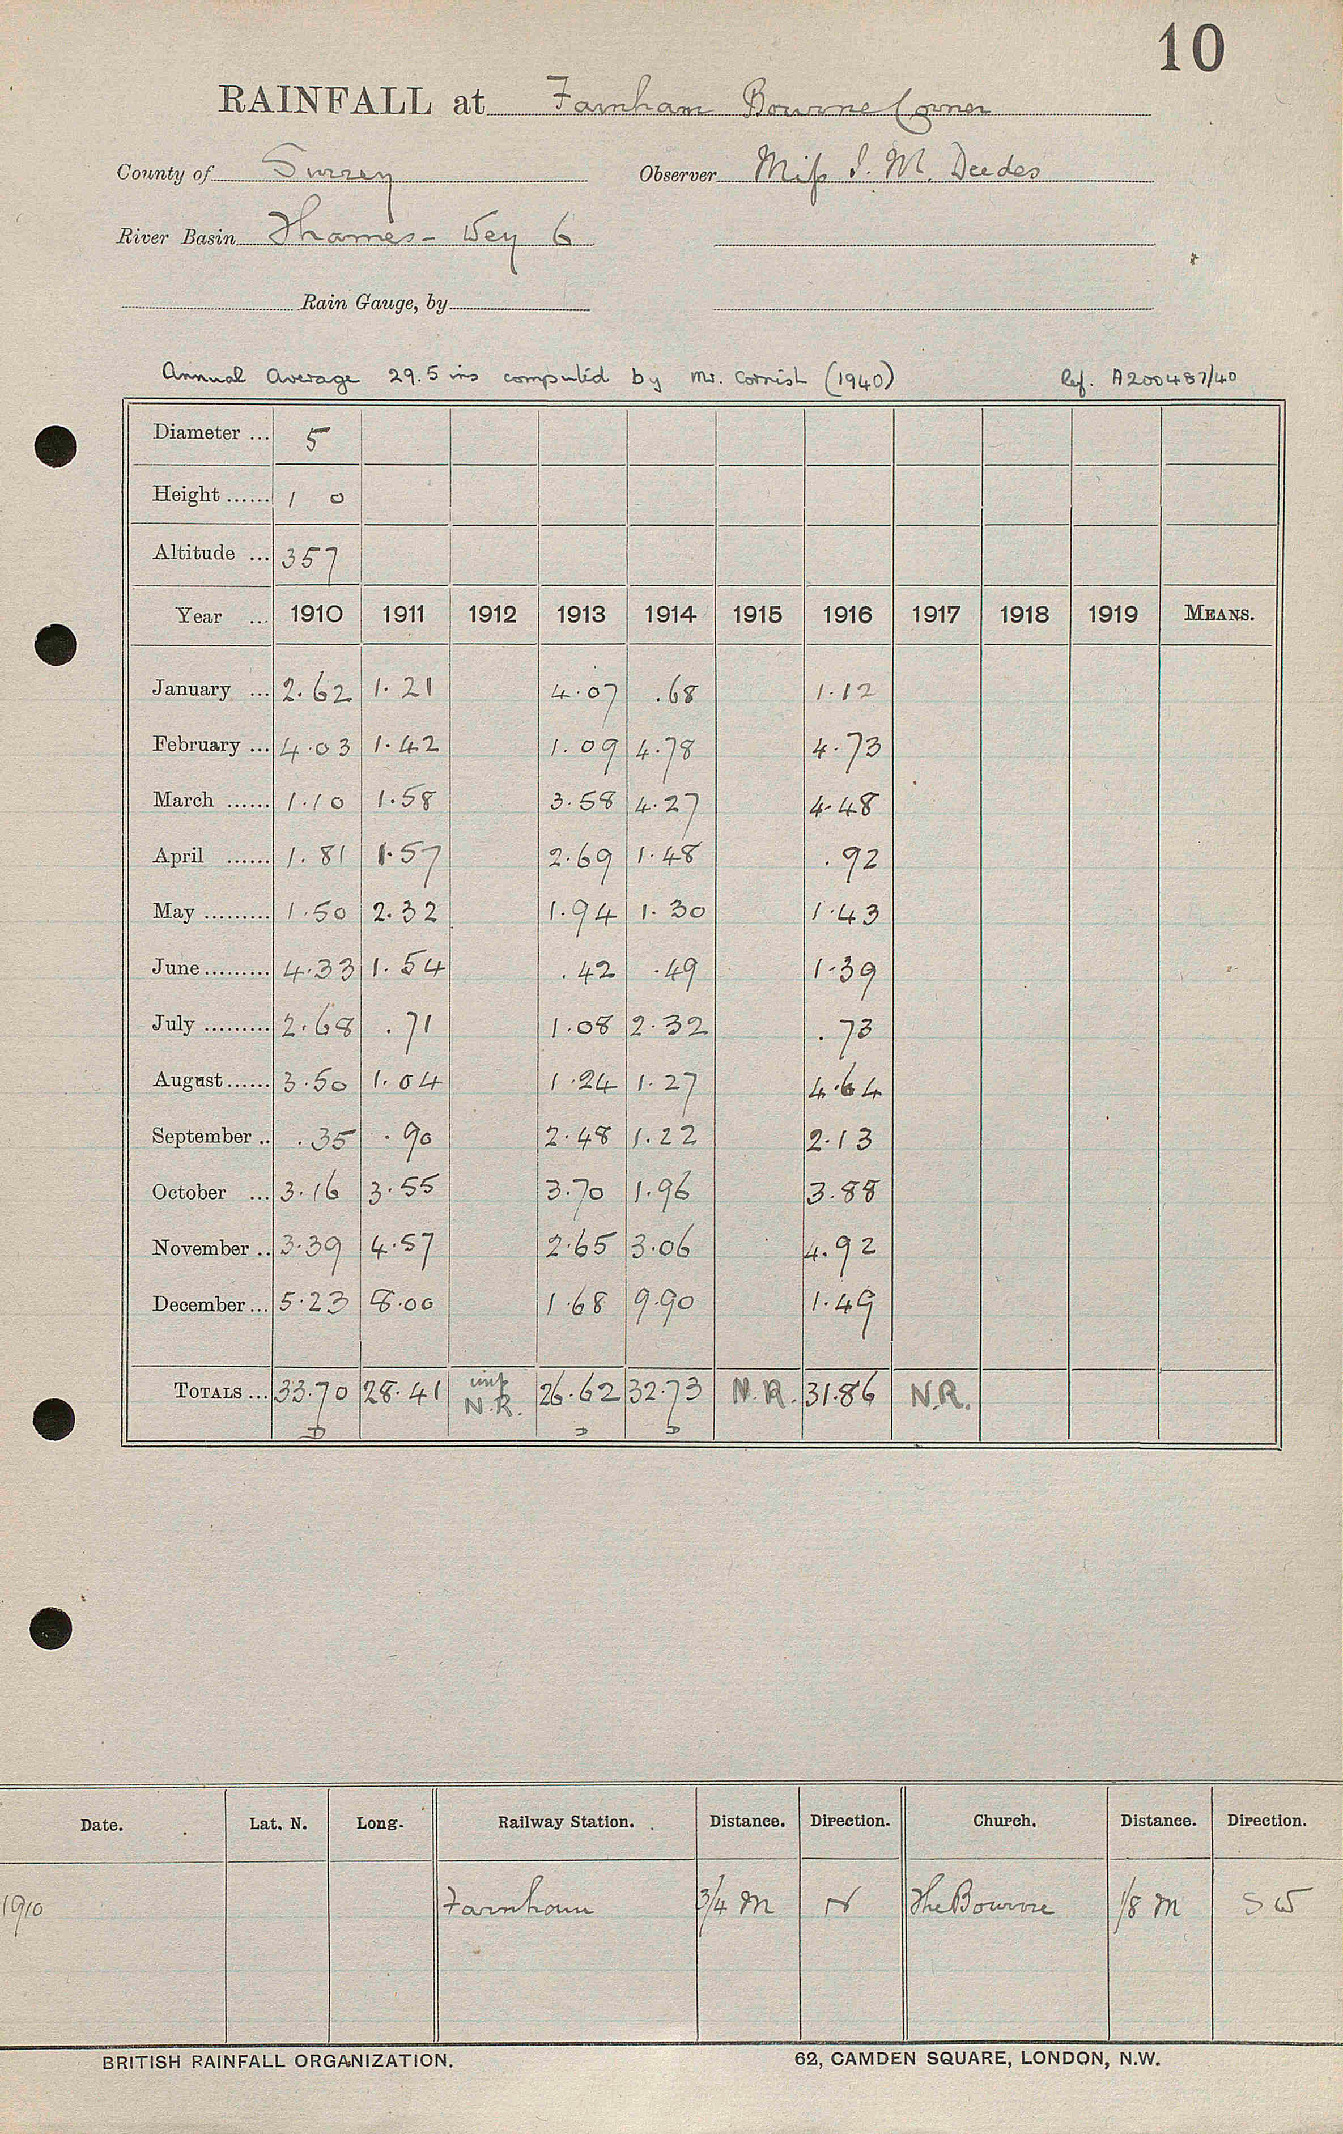 10
RAINFALL at Farnham Bourne Corner
County of Surrey Observer Miss I. M. Deedes
River Basin Thames - Wey 6
Rain Gauge, by
Annual Average 29.5 ins computed by Mr. Cornish (1940) Ref. A200487/40
Diameter ... 5
Height ...... 1 0
Altitude ... 357
Year ... 1910 1911 1912 1913 1914 1915 1916 1917 1918 1919 MEANS.
January ... 2.62 1.21 4.07 .68 1.12
February ... 4.03 1.42 1.09 4.78 4.73
March ...... 1.10 1.58 3.58 4.27 4.48
April ...... 1.81 1.57 2.69 1.48 .92
May ......... 1.50 2.32 1.94 1.30 1.43
June ......... 4.33 1.54 .42 .49 1.39
July ......... 2.68 .71 1.08 2.32 .73
August ...... 3.50 1.04 1.24 1.27 4.64
September .. .35 .90 2.48 1.22 2.13
October ... 3.16 3.55 3.70 1.96 3.88
November .. 3.39 4.57 2.65 3.06 4.92
December ... 5.23 8.00 1.68 9.90 1.49
TOTALS ... 33.70 28.41 N.R. 26.62 32.73 N.R. 31.86 N.R.
D D D
Date. Lat. N. Long. Railway Station. Distance. Direction. Church. Distance. Direction.
1910 Farnham 3/4 M N The Bourne 1/8 M SW
BRITISH RAINFALL ORGANIZATION. 62, CAMDEN SQUARE, LONDON, N.W.